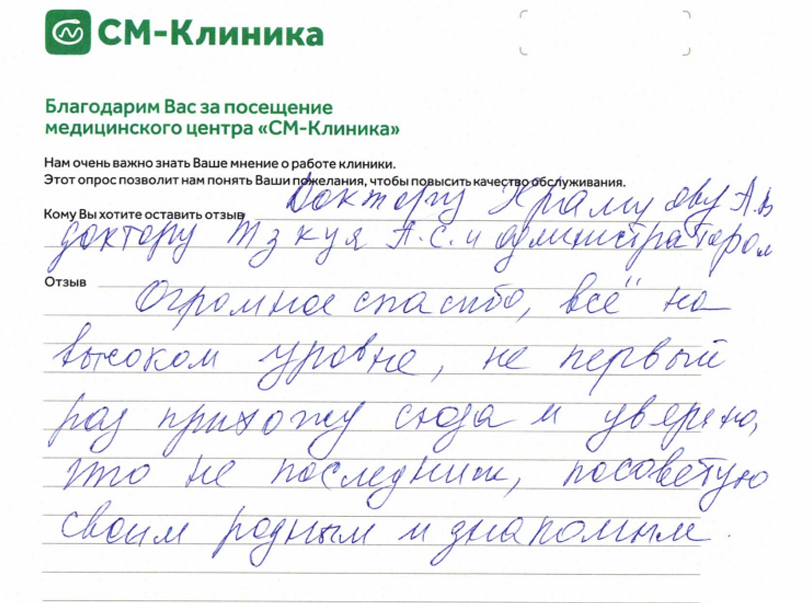 СМ-Клиника
Благодарим Вас за посещение
медицинского центра «СМ-Клиника»
Нам очень важно знать Ваше мнение о работе клиники.
Этот опрос позволит нам понять Ваши пожелания, чтобы повысить качество обслуживания.
Доктору А.В
Кому Вы хотите оставить отзыв
доктору А.С. и администраторам
Отзыв
Огромное спасибо, всё на
высоком уровне, не первый
раз прихожу сюда и уверена,
что не последний, посоветую
своим родным и знакомым.